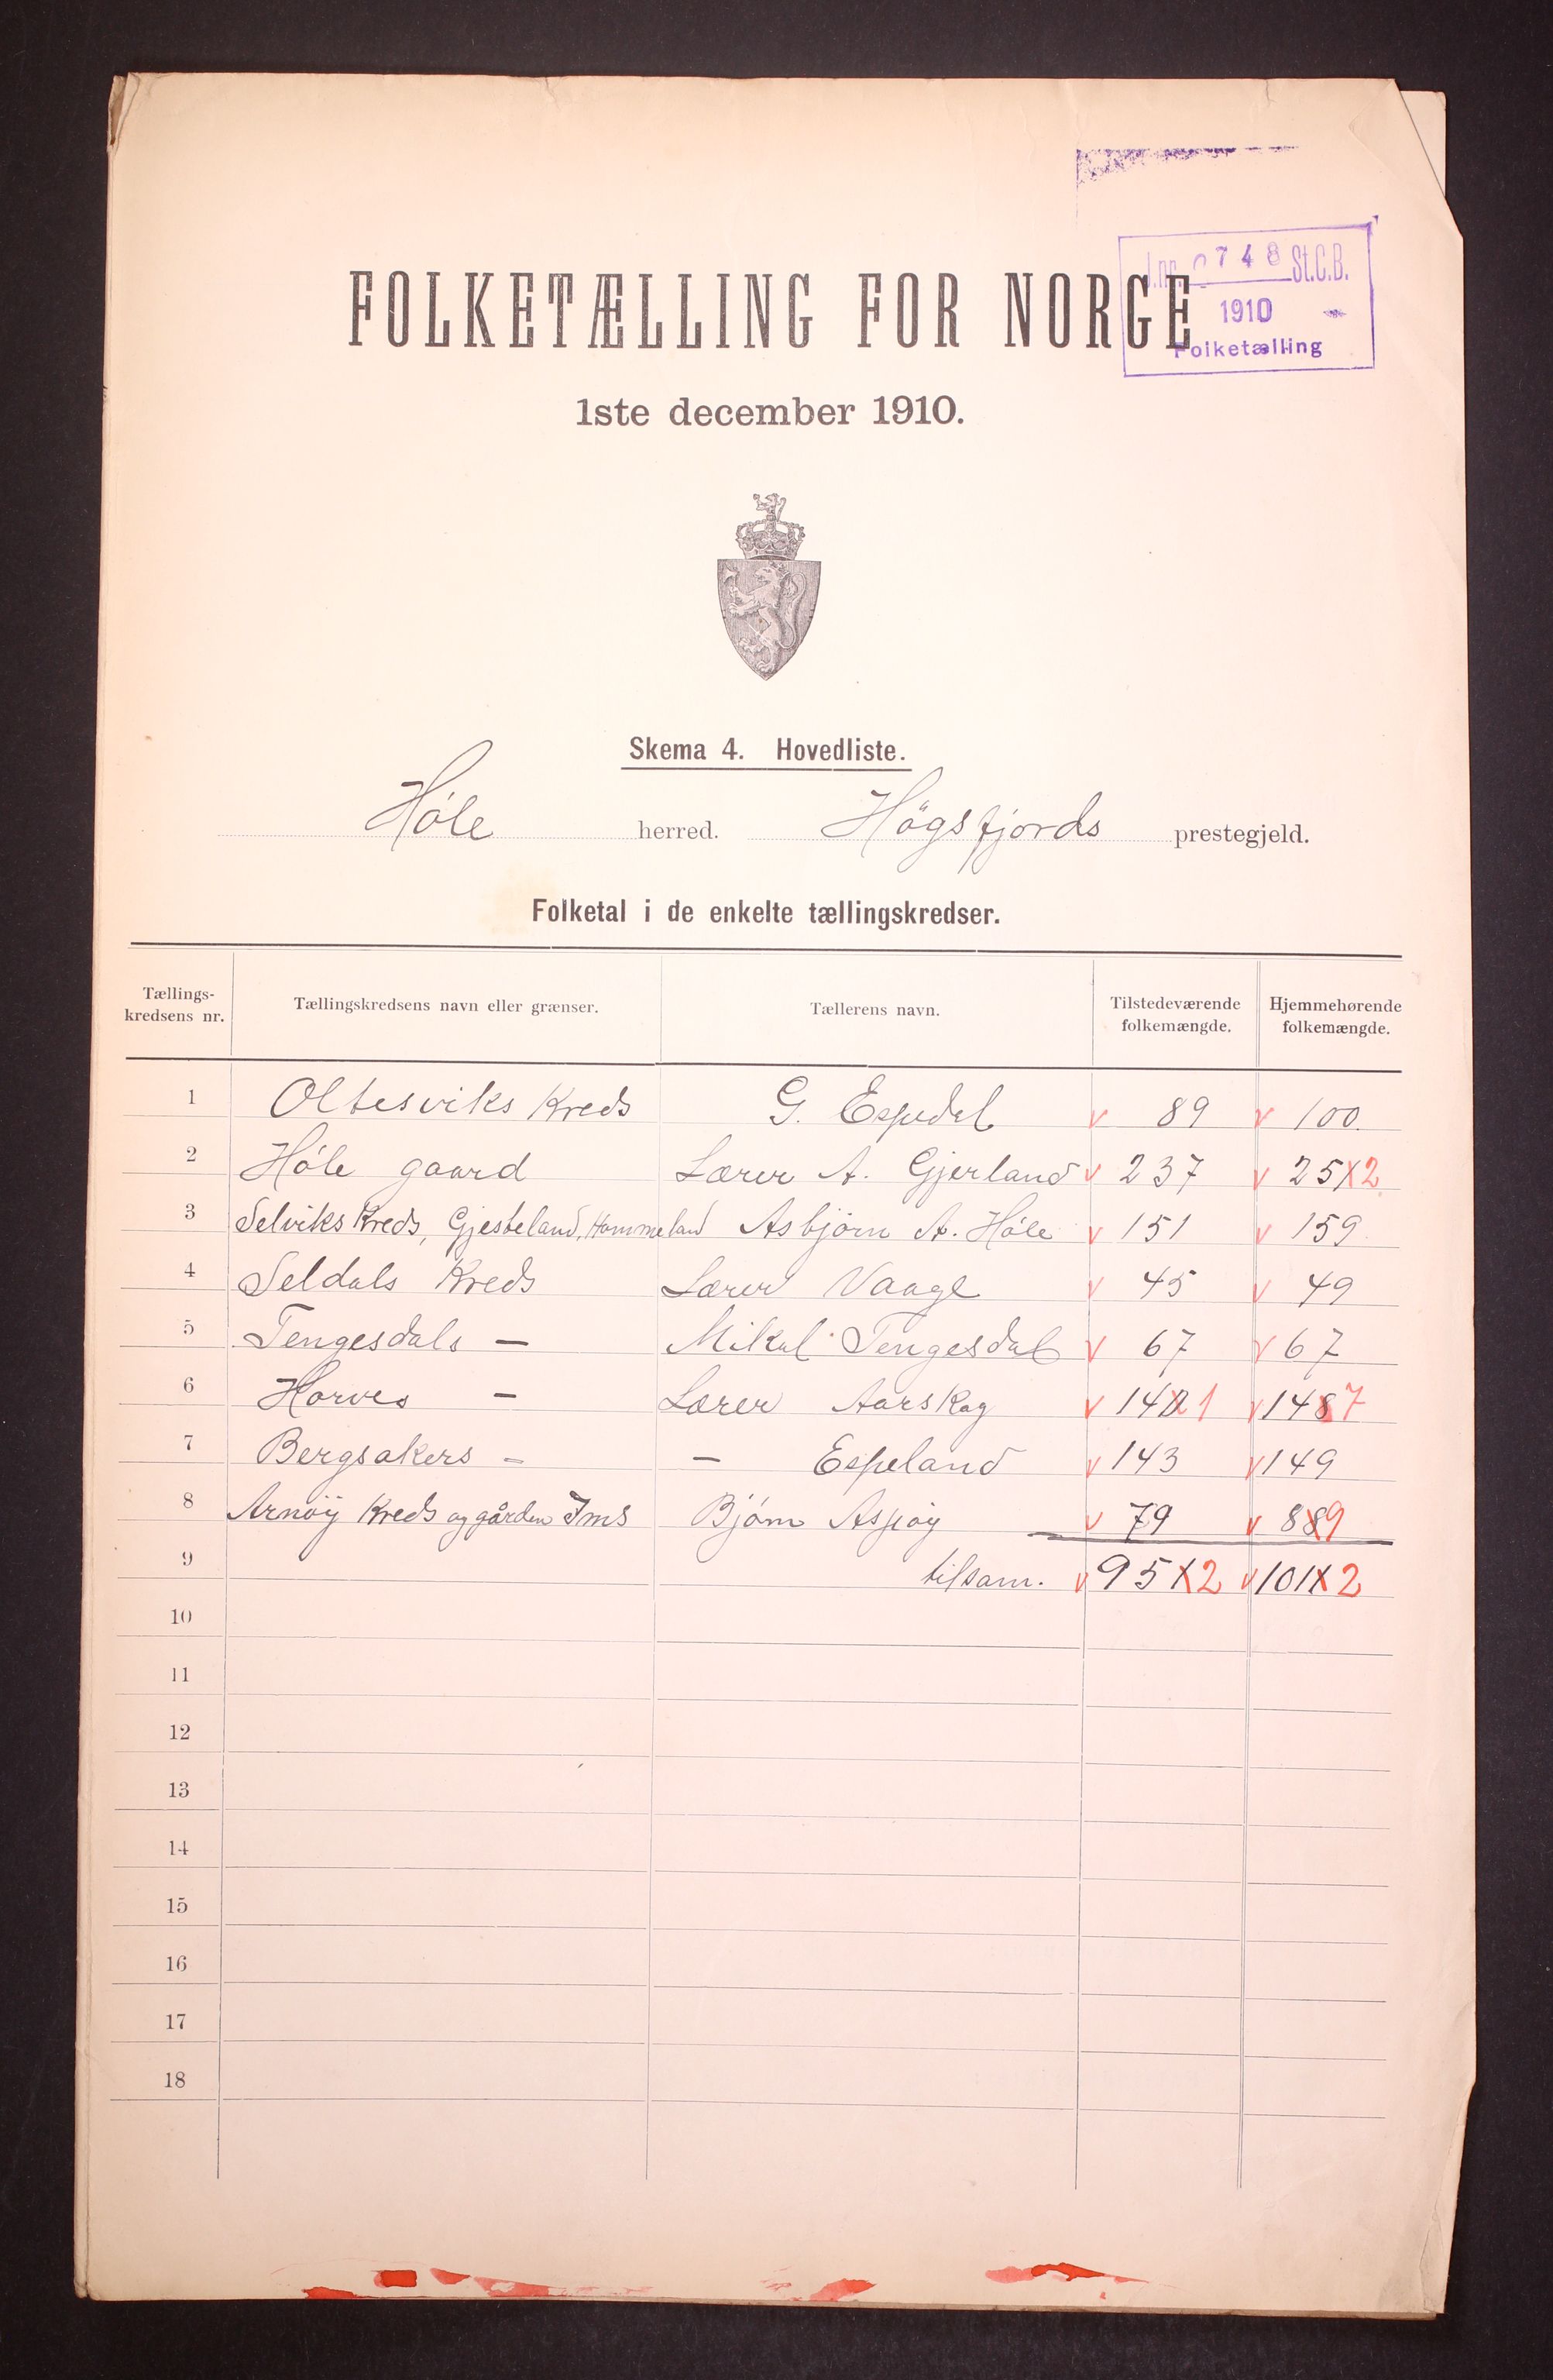 J.nr. 0748 St.C.B.
1910
Folketælling
FOLKETÆLLING FOR NORGE
1ste december 1910.
Skema 4. Hovedliste.
Høle herred. Högsfjords prestegjeld.
Folketal i de enkelte tællingskredser.
Tællings-
kredsens nr.
Tællingskredsens navn eller grænser.
Tællerens navn.
Tilstedeværende
folkemængde.
Hjemmehørende
folkemængde.
1 Oltesviks Kreds G. Espedal v 89 v 100.
2 Høle gaard Lærer A. Gjerland v 237 v 25X2
3 Selviks Kreds, Gjesteland, Hommeland Asbjörn A. Høle v 151 v 159
4 Seldals Kreds Lærer Vaage v 45 v 49
5 Tengesdals — Mikal Tengesdal v 67 v 67
6 Horves — Lærer Aarskog v 1421 v 1487
7 Bergsakers - — Espeland v 143 v 149
8 Arnöÿ Kreds og gården Ims Bjørn Aspøy v 79 v 889
9 tilsam. v 95X2 v 101X2
10
11
12
13
14
15
16
17
18